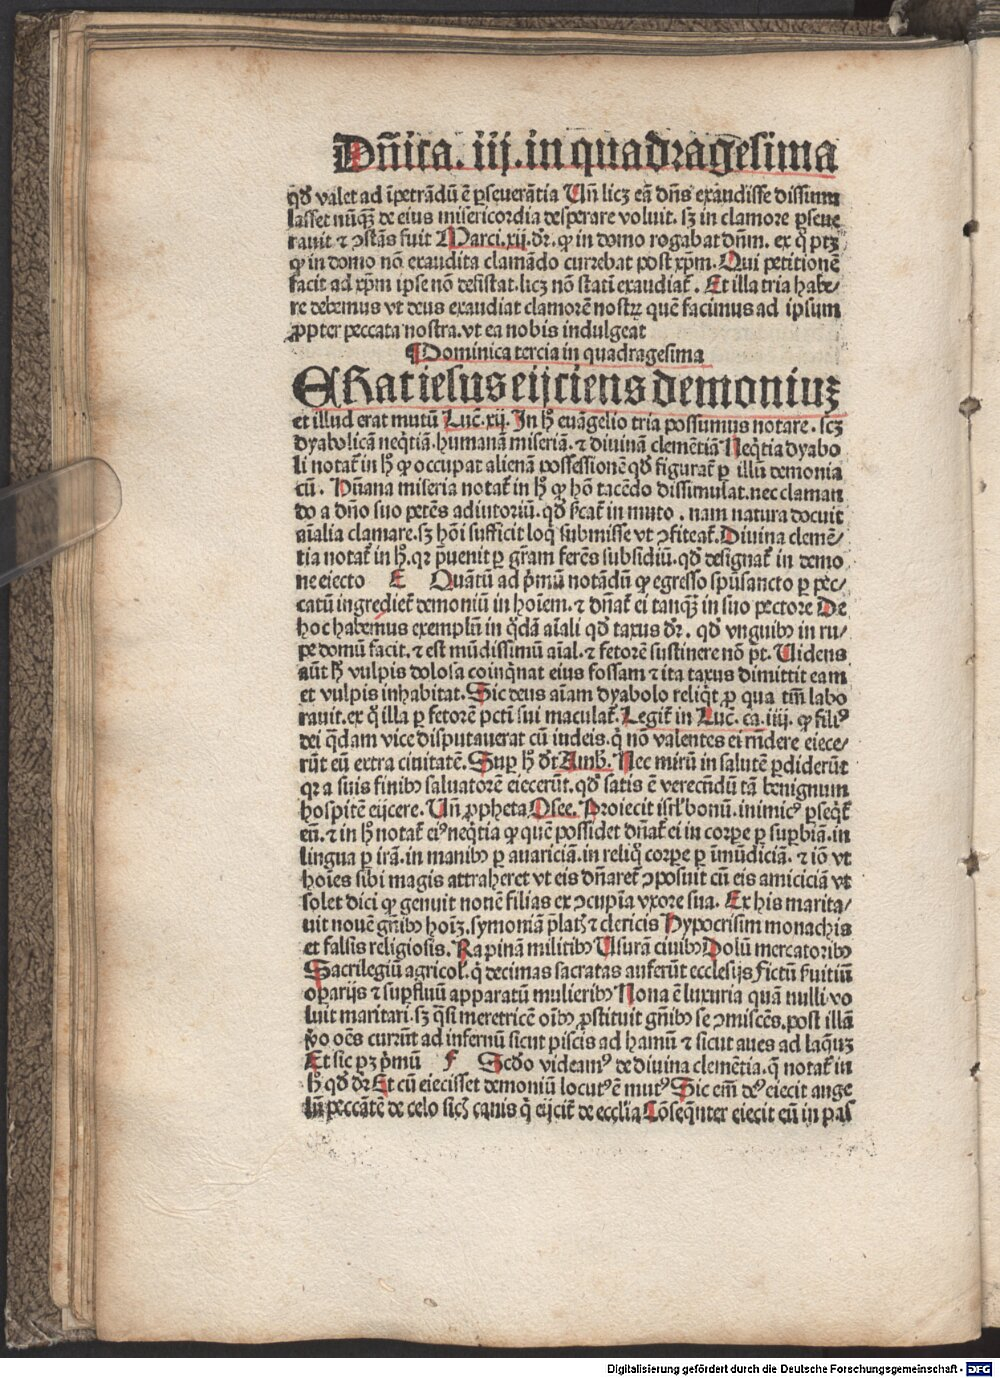 Dn̄ica. iij. in quadragesima
qd̄ valet ad īpetrādū ē ꝑseuerātia Un̄ licꝫ eā dn̄s exaudisse dissimu
lasset nūqꝫ de eius misericordia desperare voluit. sꝫ in clamore ꝑseue
rauit ⁊ ꝯstās fuit Marci. xij. dr̄. ꝙ in domo rogabat dn̄m. ex q̊ ptꝫ
ꝙ in domo nō exaudita clamādo currebat post xp̄m. Qui petitionē
facit ad xp̄m ipse nō desistat. licꝫ nō statī exaudiat̄. Et illa tria habe⸗
re debemus vt deus exaudiat clamorē nostrꝝ quē facimus ad ipsum
ꝓpter peccata nostra. vt ea nobis indulgeat
Dominica tercia in quadragesima
ERat iesus eijciens demoniuꝫ
et illud erat mutū Luc̄. xij. In h̄ euāgelio tria possumus notare. scꝫ
dyabolicā neq̄tiā. humanā miseriā. ⁊ diuinā clemētiā Neq̄tia dyabo
li notat̄ in h̄ ꝙ occupat alienā possessionē qd̄ figurat̄ ꝑ illū demonia
cū. Hūana miseria notat̄ in h̄ ꝙ hō tacēdo dissimulat. nec claman
do a dn̄o suo petēs adiutoriū. qd̄ s̄cat̄ in muto. nam natura docuit
aīalia clamare. sꝫ hōi sufficit loq̄ submisse vt ꝯfiteat̄. Diuina clemē⸗
tia notat̄ in h̄. qꝛ p̄uenit ꝑ gr̄am ferēs subsidiū. qd̄ designat̄ in demo
ne eiecto E Quātū ad p̄mū notādū ꝙ egresso sp̄usancto ꝑ pec⸗
catū ingrediet̄ demoniū in hoīem. ⁊ dn̄at̄ ei tanqꝫ in suo pectore De
hoc habemus exemplū in q̄dā aīali qd̄ taxus dr̄. qd̄ vnguibꝰ in ru⸗
pe domū facit. ⁊ est mūdissimū aīal. ⁊ fetorē sustinere nō pt̄. Uidens
aūt h̄ vulpis dolosa coinq̄nat eius fossam ⁊ ita taxus dimittit eam
et vulpis inhabitat. Sic deus aīam dyabolo reliq̄t ꝓ qua tm̄ labo
rauit. ex q̊ illa ꝑ fetorē pcti sui maculat̄. Legit̄ in Luc̄. ca. iiij. ꝙ filiꝰ
dei q̄dam vice disputauerat cū iudeis. q̄ nō valentes ei rn̄dere eiece⸗
rūt eū extra ciuitatē. Suꝑ h̄ dr̄ Amb̄. Nec mirū in salutē ꝑdiderūt
qꝛ a suis finibꝰ saluatorē eiecerūt. qd̄ satis ē verecūdū tā benignum
hospitē eijcere. Un̄ ꝓpheta Osee. Proiecit isrl̄ bonū. inimicꝰ ꝑseq̄t̄
eū. ⁊ in h̄ notat̄ eiꝰ neq̄tia ꝙ quē possidet dn̄at̄ ei in corꝑe ꝑ suꝑbiā. in
lingua ꝑ irā. in manibꝰ ꝑ auariciā. in reliq̊ corꝑe ꝑ īmūdiciā. ⁊ iō vt
hoīes sibi magis attraheret vt eis dn̄aret̄ ꝯposuit cū eis amiciciā vt
solet dici ꝙ genuit nouē filias ex ꝯcupīa vxore sua. Ex his marita⸗
uit nouē gn̄ibꝰ hoīꝫ. symoniā p̄latꝭ ⁊ clericis Hypocrisim monachis
et falsis religiosis. Rapinā militibꝰ Usurā ciuibꝰ Dolū mercatoribꝰ
Sacrilegiū agricol̄. q̄ decimas sacratas auferūt ecclesijs Fictū s̄uitiū
oꝑarijs ⁊ suꝑfluū apparatū mulieribꝰ Nona ē luxuria quā nulli vo
luit maritari. sꝫ q̄si meretricē oībꝰ ꝓstituit gn̄ibꝰ se ꝯmiscēs. post illā
v̊o oēs currūt ad infernū sicut piscis ad hamū ⁊ sicut aues ad laq̄uꝫ
Et sic pꝫ p̄mū F Scd̄o videamꝰ de diuina clemētia. q̄ notat̄ in
h̄ qd̄ dr̄ Et cū eiecisset demoniū locutꝰ ē mutꝰ Sic em̄ deꝰ eiecit ange
lū peccātē de celo sicꝭ canis q̄ eijcit̄ de eccl̄ia Cōseq̄nter eiecit eū in pas
Digitalisierung gefördert durch die Deutsche Forschungsgemeinschaft - DFG